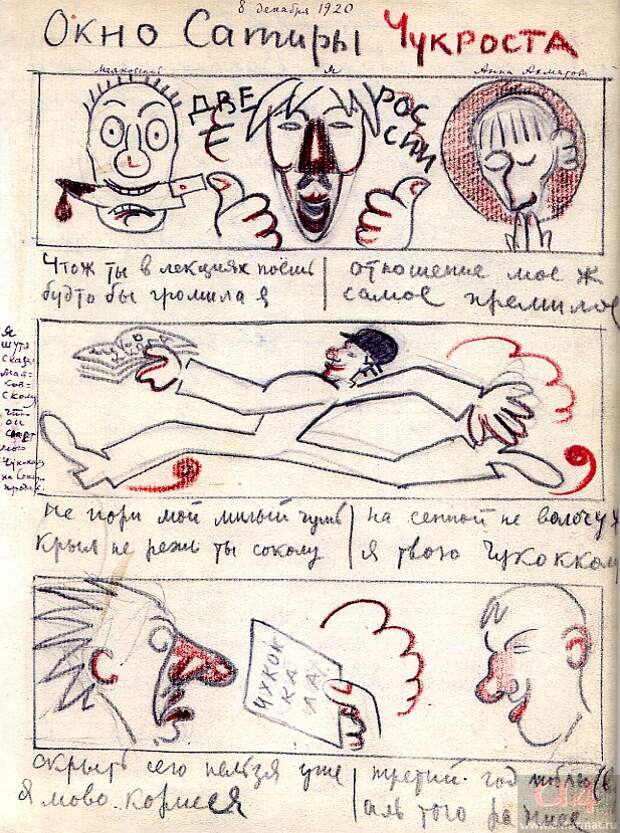 8 декабря 1920
Окно Сатиры Чукроста
Маяковский
Я
Анна Ахматова
ДВЕ
РОС
ССИИ
Чтож ты в лекциях поёшь
будто бы громила я
отношение мое ж
самое премилое
Я
шутя
сказал
Мая-
ков-
скому,
что
он
мою
Не пори мой милый чушь
Крыл не режь ты соколу
на сенной не волочу ж
я твою Чукокколу
ЧУКОК
КА
ЛА
скрыть сего нельзя уже
я мово Корнея
третий год люблю (в
аль того раннея